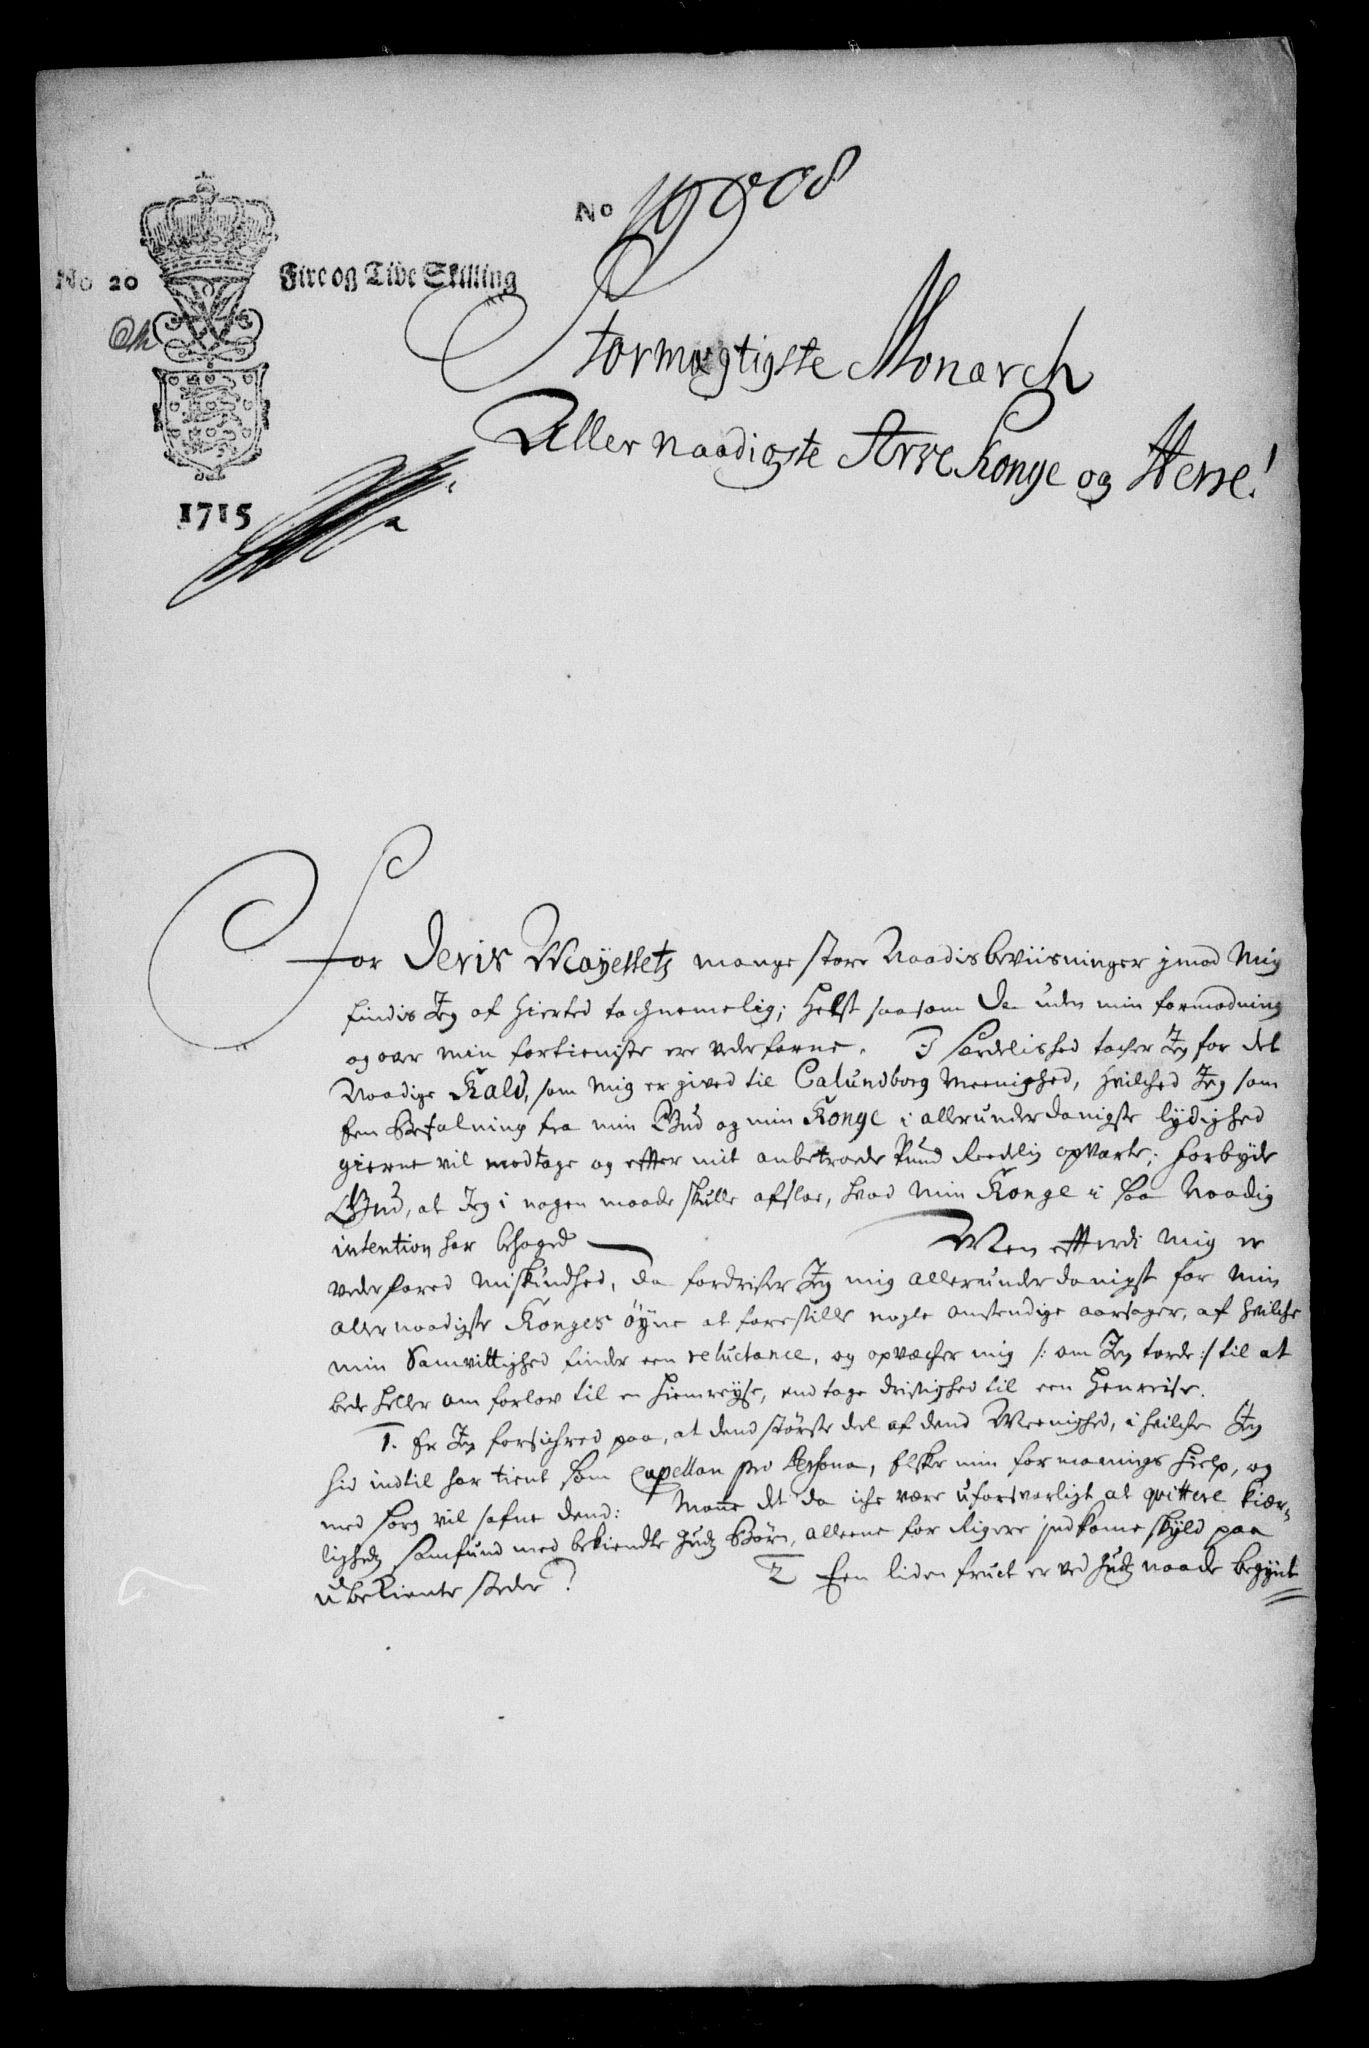 No 19908
No 20 Fire og Tive Skilling
1715
Stormegtigste Monarch
Allernaadigste Arve Konge og Herre!
For Deris Mayestetz mange store Naadis beviisninger jmod Mig
findis Jeg af Hierted tachnemelig; Helst saasom De uden min formodning
og over min fortieniste ere vederfarne. I særdelished tacher Jeg for det
Naadige Kald, som Mig er gived til Calundborg Meenighed, Hvilched Jeg som
een Befalning fra min Gud og min Konge i allerunderdanigste lydighed
gierne vil modtage og efter mit anbetroede Pund Reedelig opvarte; Forbyde
Gud, at Jeg i nogen maade skulle afslae, hvad Min Konge i saa Naadig
intention har behaged Men efterdi Mig er
vederfared Miskundhed, da fordrister Jeg mig allerunderdanigst for Min
allernaadigste Konges øyne at forestille nogle omstendige aarsager, af Hvilche
min Samvittighed finder een reluctance, og opvæcher mig /: om Jeg torde :/ til at
bede heller om forlov til en Hiemreyse, end tage dristighed til een Henreise.
1. Er Jeg forsichred paa, at dend største del af dend Meenighed, i Hvilchen Jeg
hid indtil har tient som Capellan pro Persona, Elsker min formanings Hielp, og
med sorg vil safne dend: Monne det da iche være uforsvarligt at qvittere kiær-
lighedz samfund med bekiendte Gudz Børn, alleene for Rigere Indkome skyld paa
ubekiente steder? 2 Een liden fruct er ved Gudz naade begynt